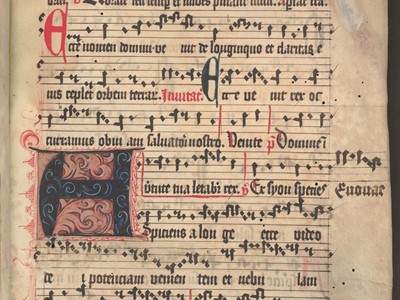 et nubes pluant
Ecce nomen domini ve nit de longinquo et claritas e
ius replet orbem terrar. Invitat. Ecce ve nit rex oc
curramus obviam salvatori nostro. Venite p Domine
virtute tua letabit rex. p Ex syon species
Euouae
Aspiciens a lon ge ecce video
de i potenciam venien tem et nebu lam